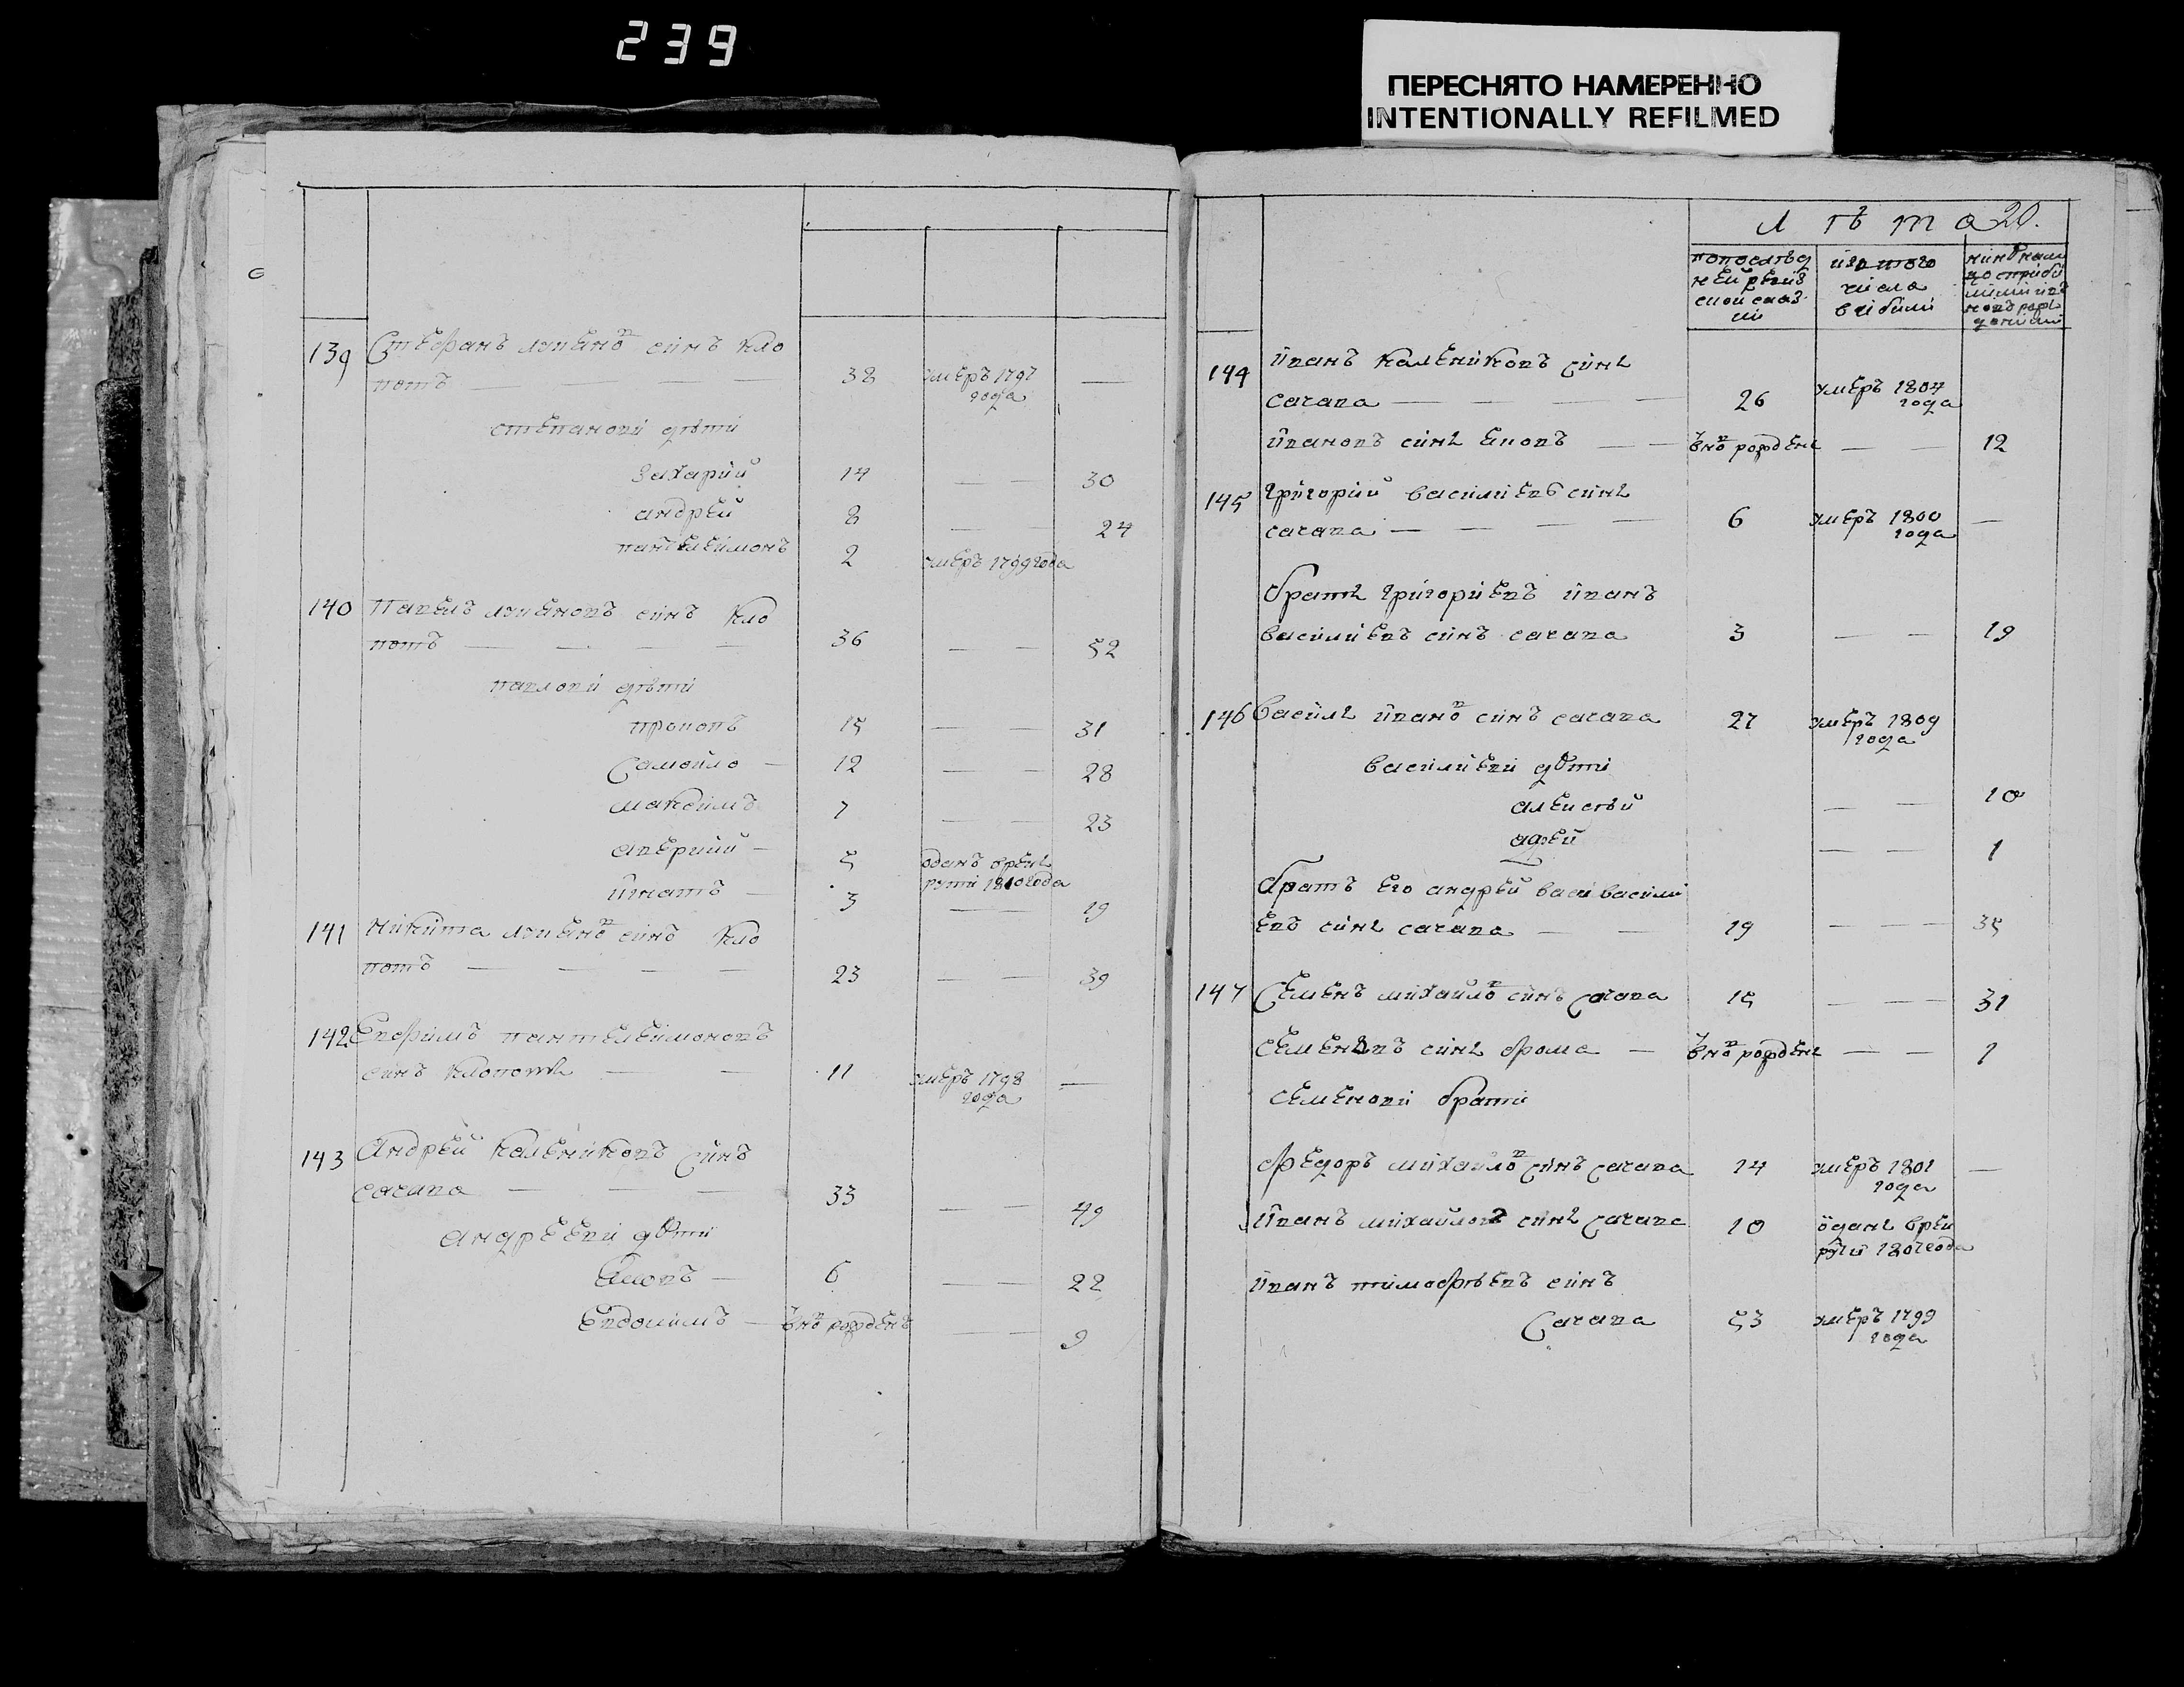 239
ПЕРЕСНЯТО НАМЕРЕННО
INTENTIONALLY REFILMED
139 Стефанъ лукьяновъ синъ кло
потъ — 38 умеръ 1797 года —
степанови дѣти
Захарий 14 — — 30
андрей 8 — — 24
пантелеимонъ 2 умеръ 1799 года
140 Павелъ лукьяновъ синъ кло
потъ — 36 — — 52
павлови дѣти
прокопъ 15 — — 31
Самойло — 12 — — 28
максимъ 7 — — 23
аверкий — 5 оданъ врекъ
рути 1810 года
игнатъ — 3 — — 19
141 никита лукьяновъ синъ кло
потъ — 23 — — 39
142 Евфимъ пантелеимоновъ
синъ клопотъ — 11 умеръ 1798 года —
143 Андрей калениковъ синъ
сачава — 33 — — 49
андрееви дѣти
Яковъ — 6 — — 22
Евдокимъ — вновъ рожденъ — — 9
Лѣта 20.
по послѣд
ней ревиз
ской сказ
ки
изъ того
числа
вибили
144 иванъ калениковъ синъ
сачава — 26 умеръ 1804 года
ивановъ синъ яковъ — вновъ рожденъ — — 12
145 григорий василиевъ синъ
сачава — 6 умеръ 1800 года —
братъ григориевъ иванъ
василиевъ синъ сачава 3 — — 19
146 василъ ивановъ синъ сачава 27 умеръ 1809 года
василиеви дѣти
алексѣй — — 10
— — 1
братъ его андрей васи васили
евъ синъ сачава — 19 — — 35
147 Семенъ михайловъ синъ сачава 15 — — 31
семеновъ синъ фома — вновъ рожденъ — — 1
семенови брати
федоръ михайловъ синъ сачава 14 умеръ 1801 года —
иванъ михайловъ синъ сачава 10 оданъ врек
рути 1807 года
иванъ тимофѣевъ синъ
Сачава 53 умеръ 1799 года